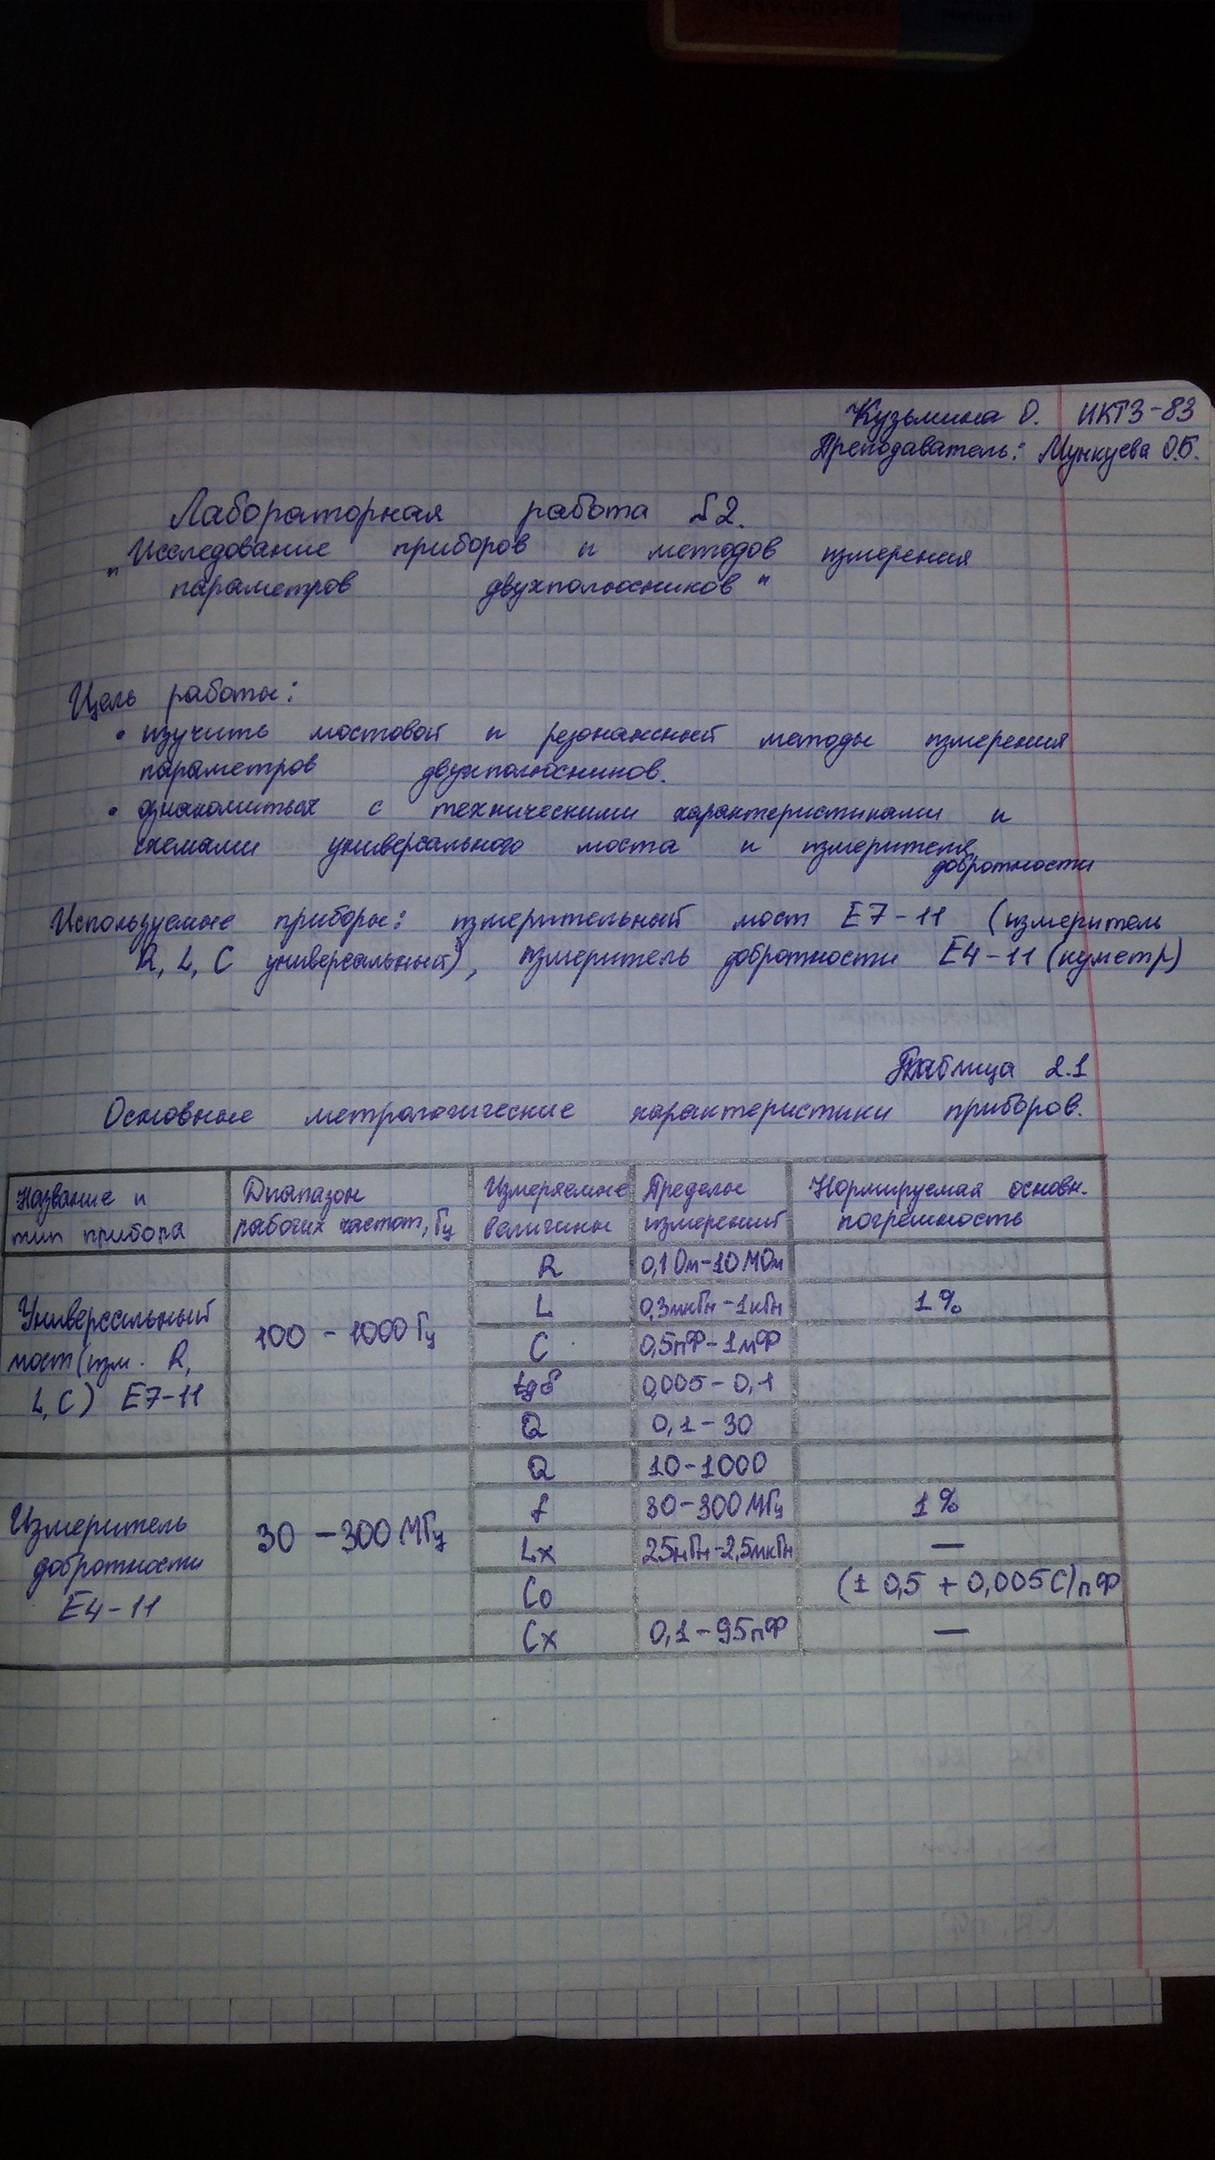 Кузьмина О. ИКТЗ-83
Преподаватель: Мункуева О.Б.
Лабораторная работа №2.
„Исследование приборов и методов измерения
параметров двухполюсников"
Цель работы:
• изучить мостовой и резонансный методы измерения
параметров двухполюсников.
• ознакомиться с техническими характеристиками и
схемами универсального моста и измерителя
добротности
Используемые приборы: измерительный мост Е7-11 (измеритель
R, L, C универсальный), измеритель добротности Е4-11 (куметр)
Таблица 2.1
Основные метрологические характеристики приборов.
Название и тип прибора Диапазон рабочих частот, Гц Измеряемые величины Пределы измерений Нормируемая основн. погрешность
R 0,1 Ом-10 МОм
Универсальный мост (изм. R, L, C) Е7-11 100 - 1000 Гц L 0,3мкГн-1кГн 1%
C 0,5пФ-1мФ
tgδ 0,005-0,1
Q 0,1-30
Q 10-1000
Измеритель добротности Е4-11 30 - 300 МГц f 30-300 МГц 1%
Lx 25нГн-2,5мкГн —
Co (± 0,5 + 0,005C) пФ
Cx 0,1-95пФ —